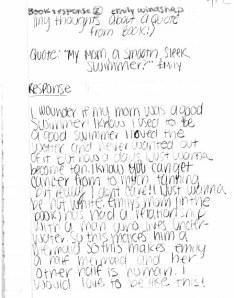 Book response ② Emily Windsnap
(my thoughts about a quote
from book!)
Quote: "My Mom, a smooth, sleek
swimmer?" Emily
RESPONSE
I wounder if my mom was a good
swimmer. I know I used to be
a good swimmer I loved the
water and never wanted out
of it but now a days I just wanna
become tan. I know you can get
cancer from to much tanning
but really I dont care!! I just wanna
be not white. Emilys mom (in the
book) has had a relationship
with a man who lives under-
water. So this makes him a
mermaid so this makes Emily
a half mermaid and her
other half is human. I
would love to be like this!